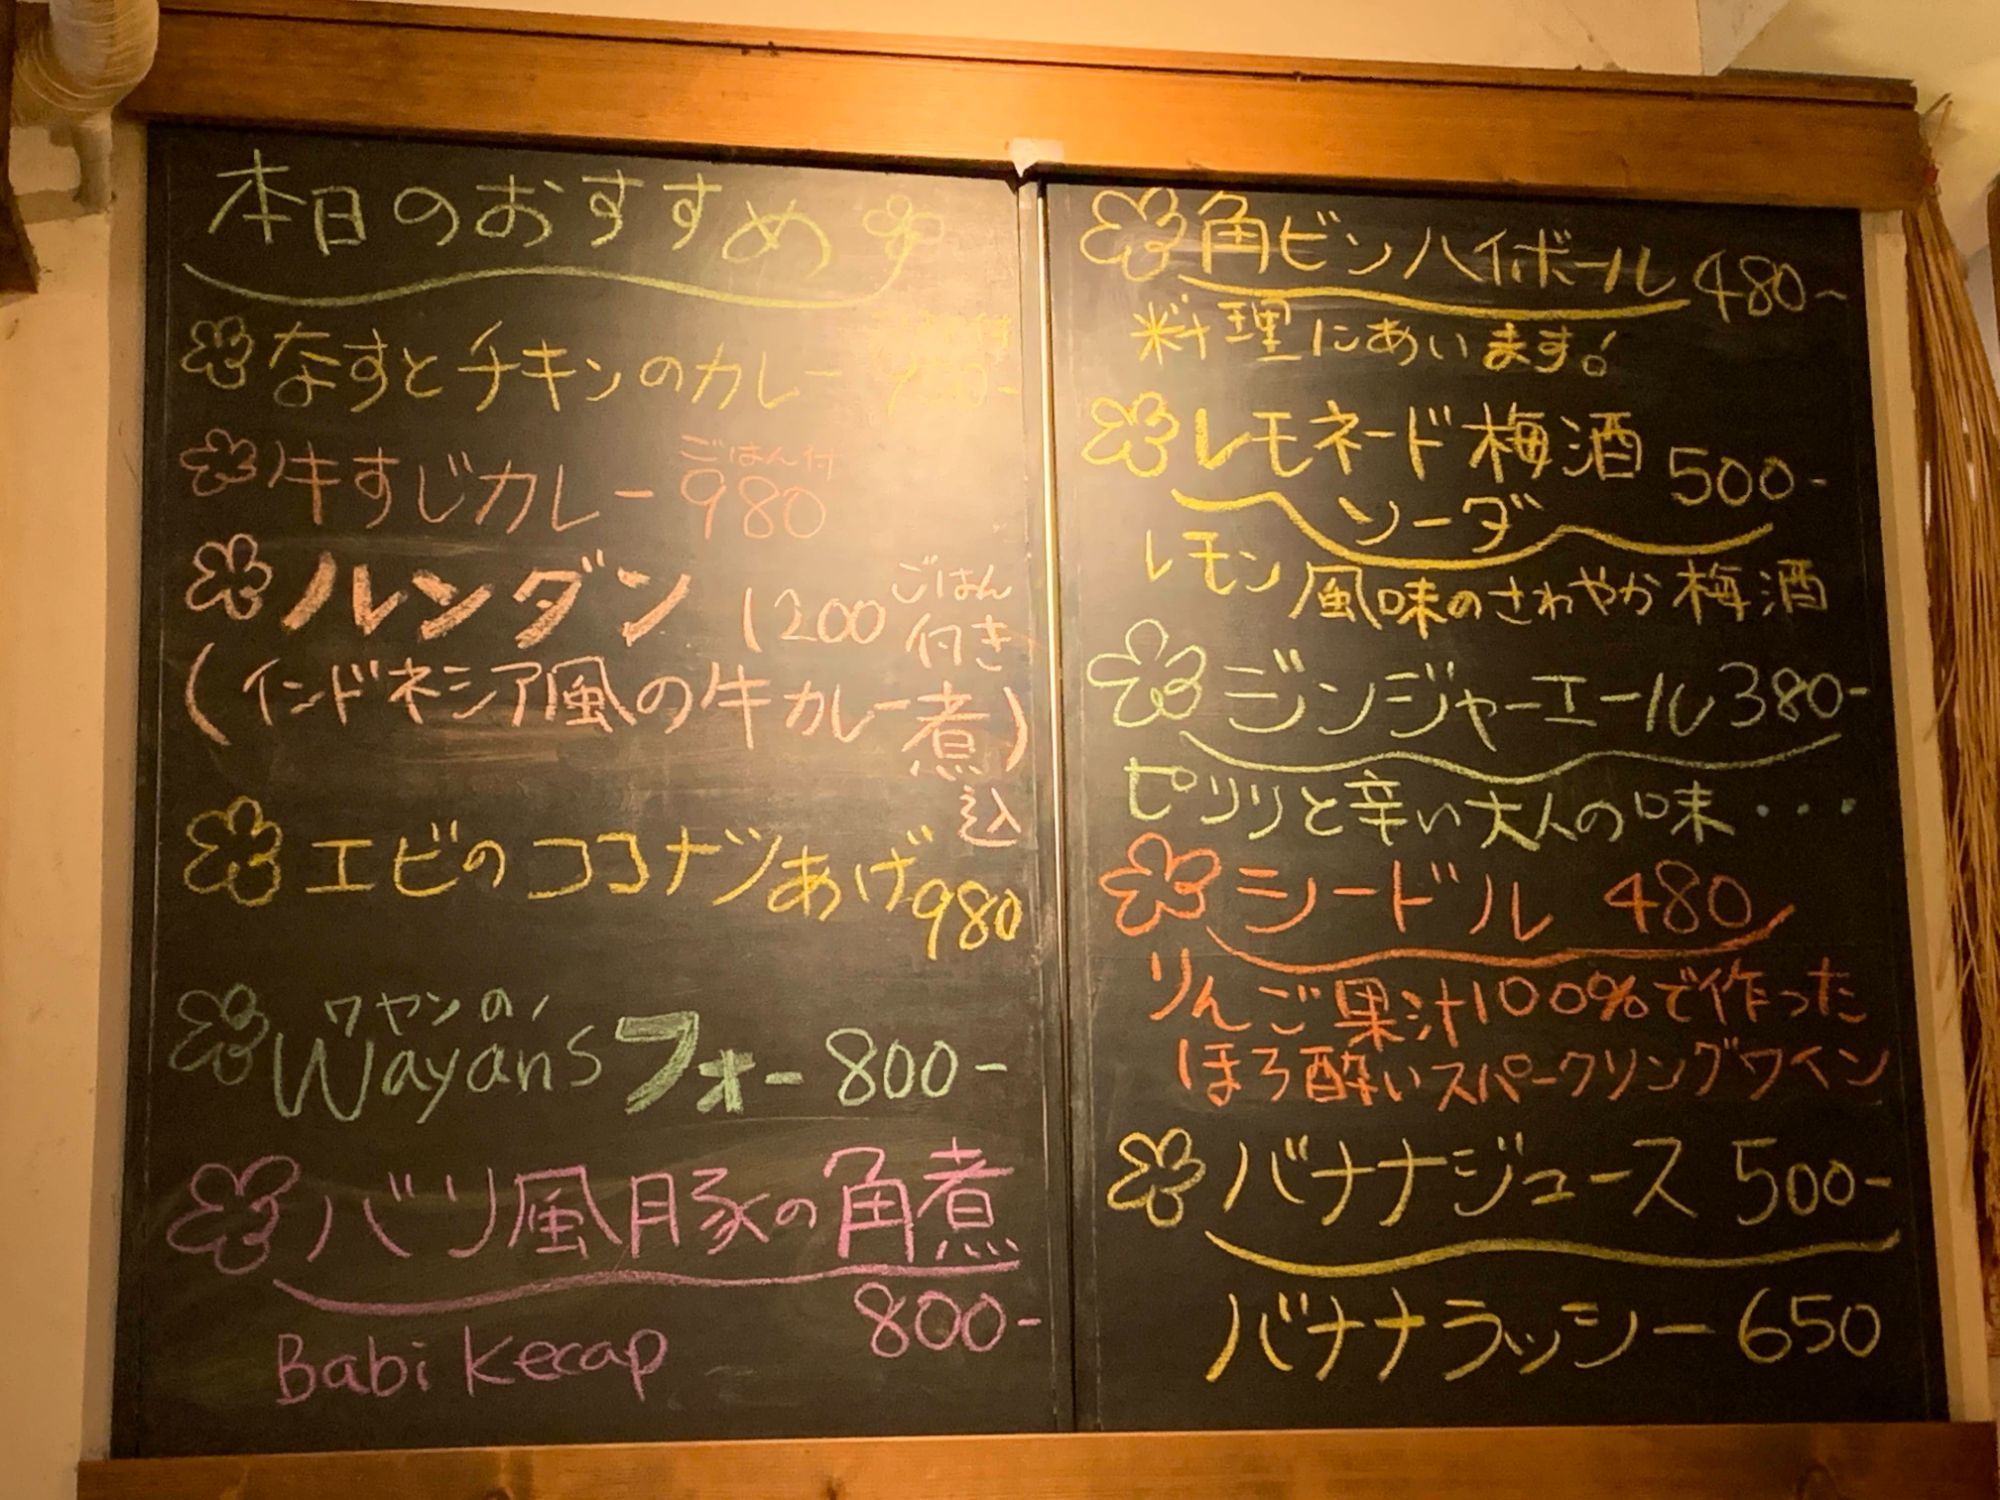 本日のおすすめ
なすとチキンのカレー
牛すじカレー 980 ごはん付
ルンダン 1200 ごはん付き
(インドネシア風の牛カレー煮込)
エビのココナツあげ 980
ワヤンの
Wayans フォー 800-
バリ風豚の角煮
800-
Babi Kecap
角ビンハイボール 480-
料理にあいます!
レモネード梅酒
ソーダ 500-
レモン風味のさわやか梅酒
ジンジャーエール 380-
ピリリと辛い大人の味・・・
シードル 480
りんご果汁100%で作った
ほろ酔いスパークリングワイン
バナナジュース 500-
バナナラッシー 650